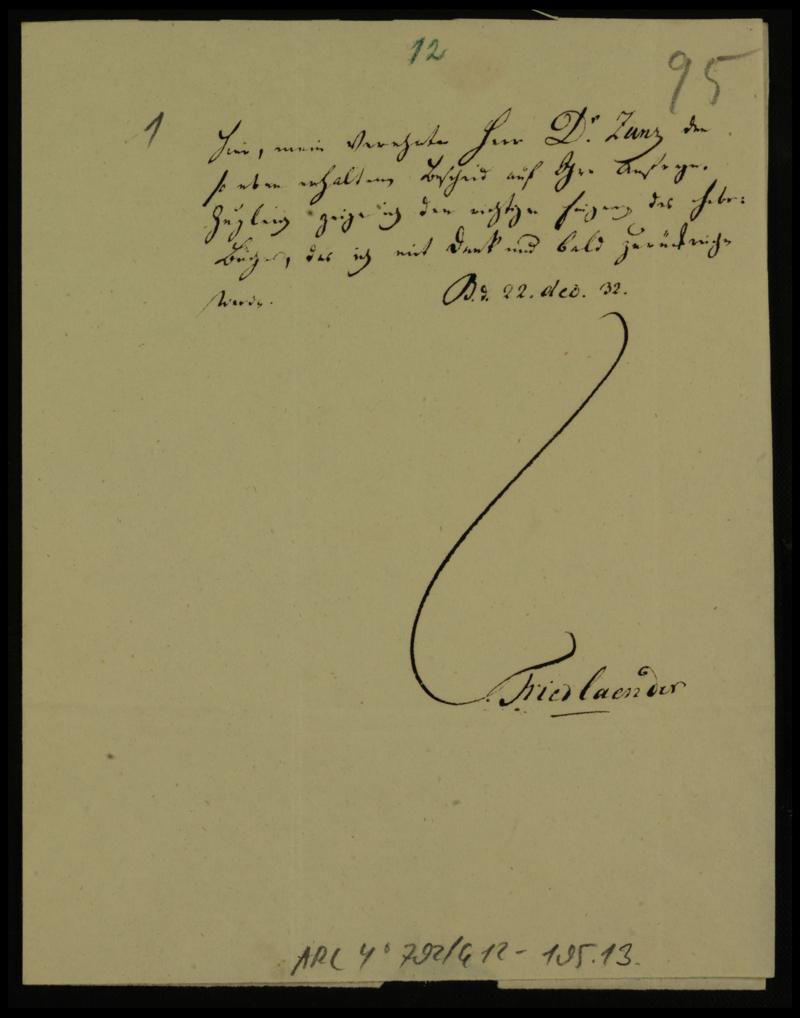 12
95
1
Hier, mein Verehrter Herr Dr. Zunz den
so eben erhaltenen Bescheid auf Ihre Anfrage.
Zugleich zeige ich den richtigen des hebr:
Buches, das ich mit Dank und bald zurückreichen
werde.
B. d. 22. dec. 32.
Friedlaender
ARC 4° 792/G12 - 195.13.